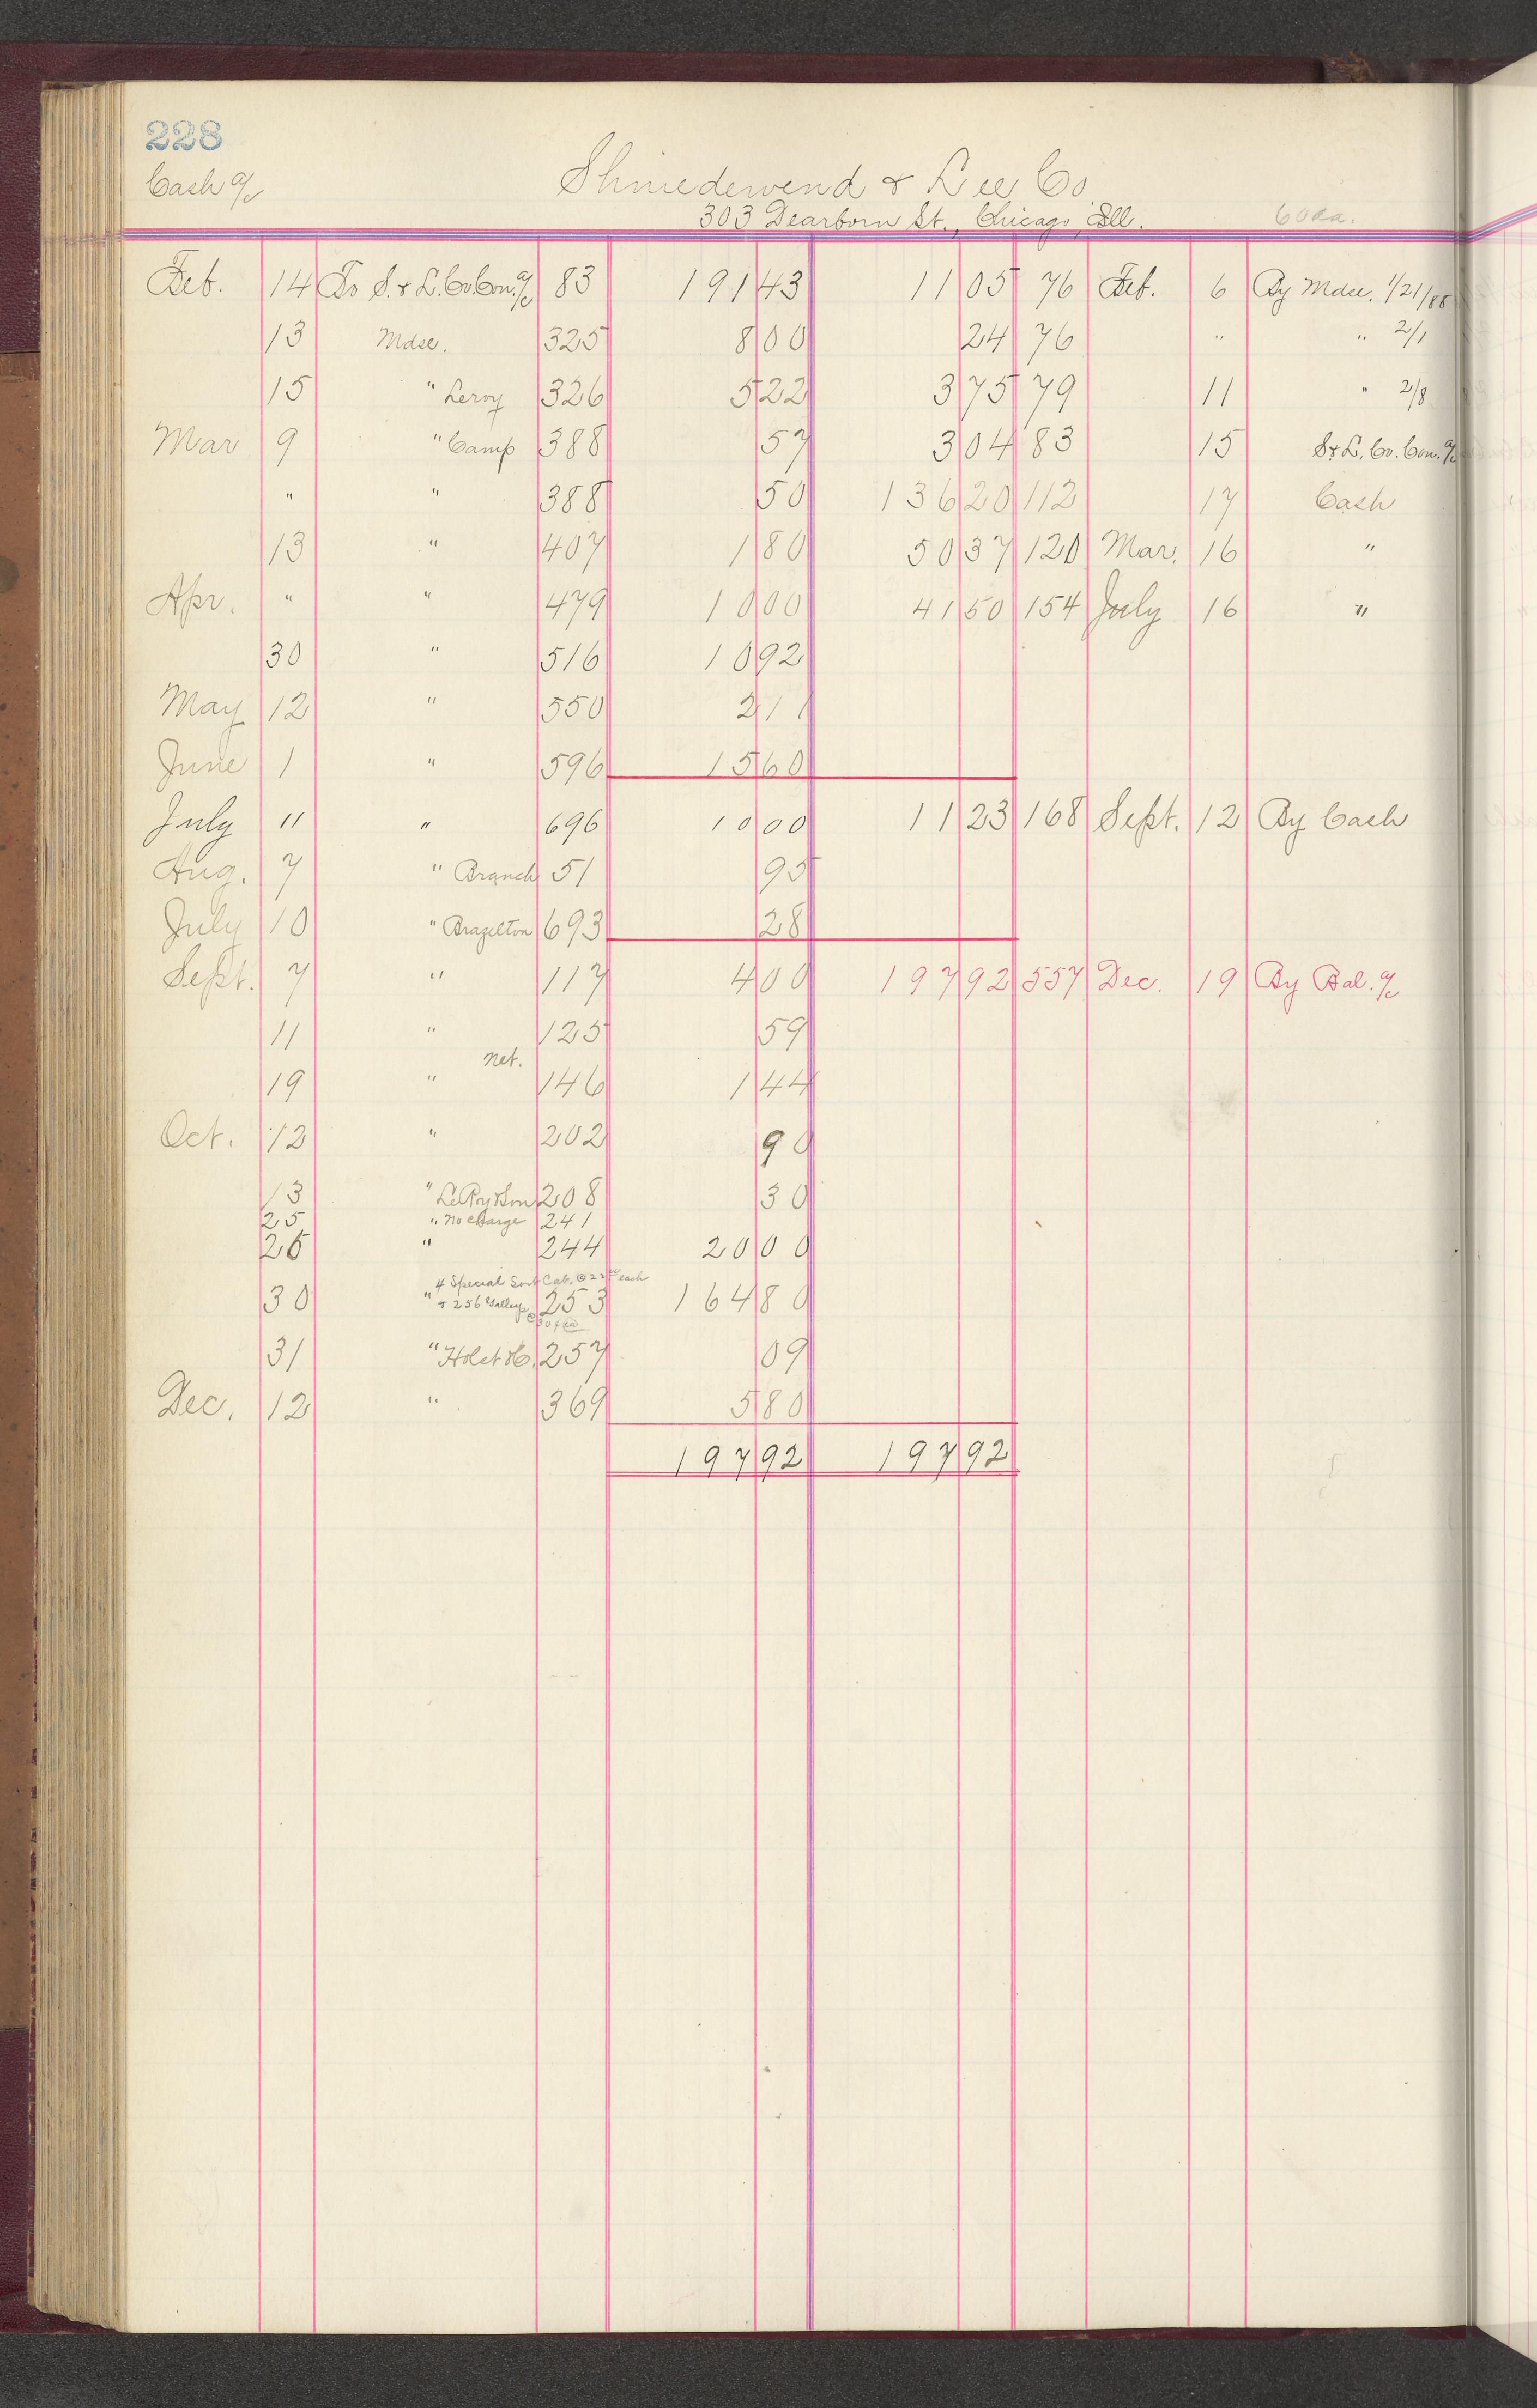 228
Cash a/c
Shniedewend & Lee Co
303 Dearborn St., Chicago, Ill.
60 da.
Feb. 14 To S. & L. Co. Con. a/c 83 191 43 11 05 76 Feb. 6 By Mdse. 1/21/88
13 Mdse. 325 8 00 24 76 " " 2/1
15 " Leroy 326 5 22 3 75 79 11 " 2/8
Mar 9 " Camp 388 57 3 04 83 15 S. & L. Co. Con. a/c
" " 388 50 136 20 112 17 Cash
13 " 407 1 80 50 37 120 Mar. 16 "
Apr. " " 479 10 00 41 50 154 July 16 "
30 " 516 10 92
May 12 " 550 2 11
June 1 " 596 15 60
July 11 " 696 10 00 11 23 168 Sept. 12 By Cash
Aug. 7 " Branch 51 95
July 10 " Brazelton 693 28
Sept. 7 " 117 4 00 197 92 557 Dec. 19 By Bal. a/c
11 " 125 59
19 " net. 146 1 44
Oct. 12 " 202 90
13 " LeRoy & Son 208 30
25 " no charge 241
26 " 244 20 00
4 Special Sort Cab. @ 22 00 each
30 " & 256 Galleys 253 164 80
@ 30¢ ea
31 " Holst & Co. 257 09
Dec. 12 " 369 5 80
197 92 197 92